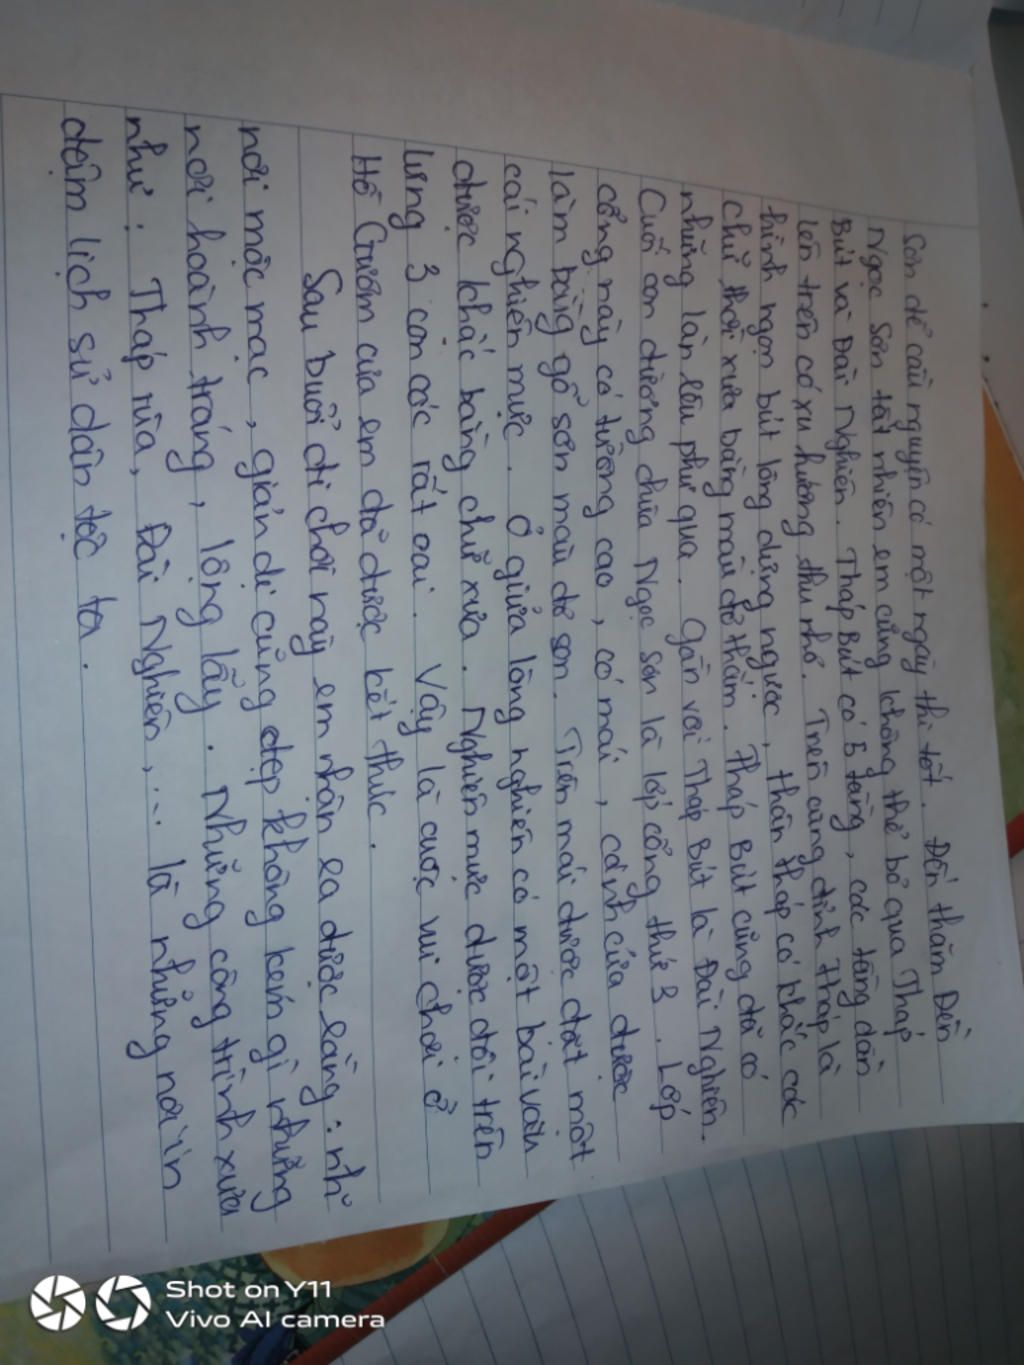 Sơn để cầu nguyện có một ngày thi tốt. Đến thăm Đền
Ngọc Sơn tất nhiên em cũng không thể bỏ qua Tháp
Bút và Đài Nghiên. Tháp Bút có 5 tầng, các tầng dần
lên trên có xu hướng thu nhỏ. Trên cùng đỉnh tháp là
hình ngọn bút lông dựng ngược, thân tháp có khắc các
chữ thời xưa bằng màu đỏ thẫm. Tháp Bút cũng đã có
những lần phụ qua. Gần với Tháp Bút là Đài Nghiên.
Cuối con đường chùa Ngọc Sơn là lớp cổng thứ 3. Lớp
cổng này có tường cao, có mái, cánh cửa được
làm bằng gỗ sơn màu đỏ son. Trên mái được đặt một
cái nghiên mực. Ở giữa lòng nghiên có một bài văn
được khắc bằng chữ xưa. Nghiên mực được đội trên
lưng 3 con cóc rất oai. Vậy là cuộc vui chơi ở
Hồ Gươm của em đã được kết thúc.
Sau buổi đi chơi này em nhận ra được rằng: nh
nơi mộc mạc, giản dị cũng đẹp không kém gì những
nơi hoành tráng, lộng lẫy. Những công trình xưa
như: Tháp rùa, Đài Nghiên,... là những nơi in
đậm lịch sử dân tộc ta.
Shot on Y11
Vivo AI camera